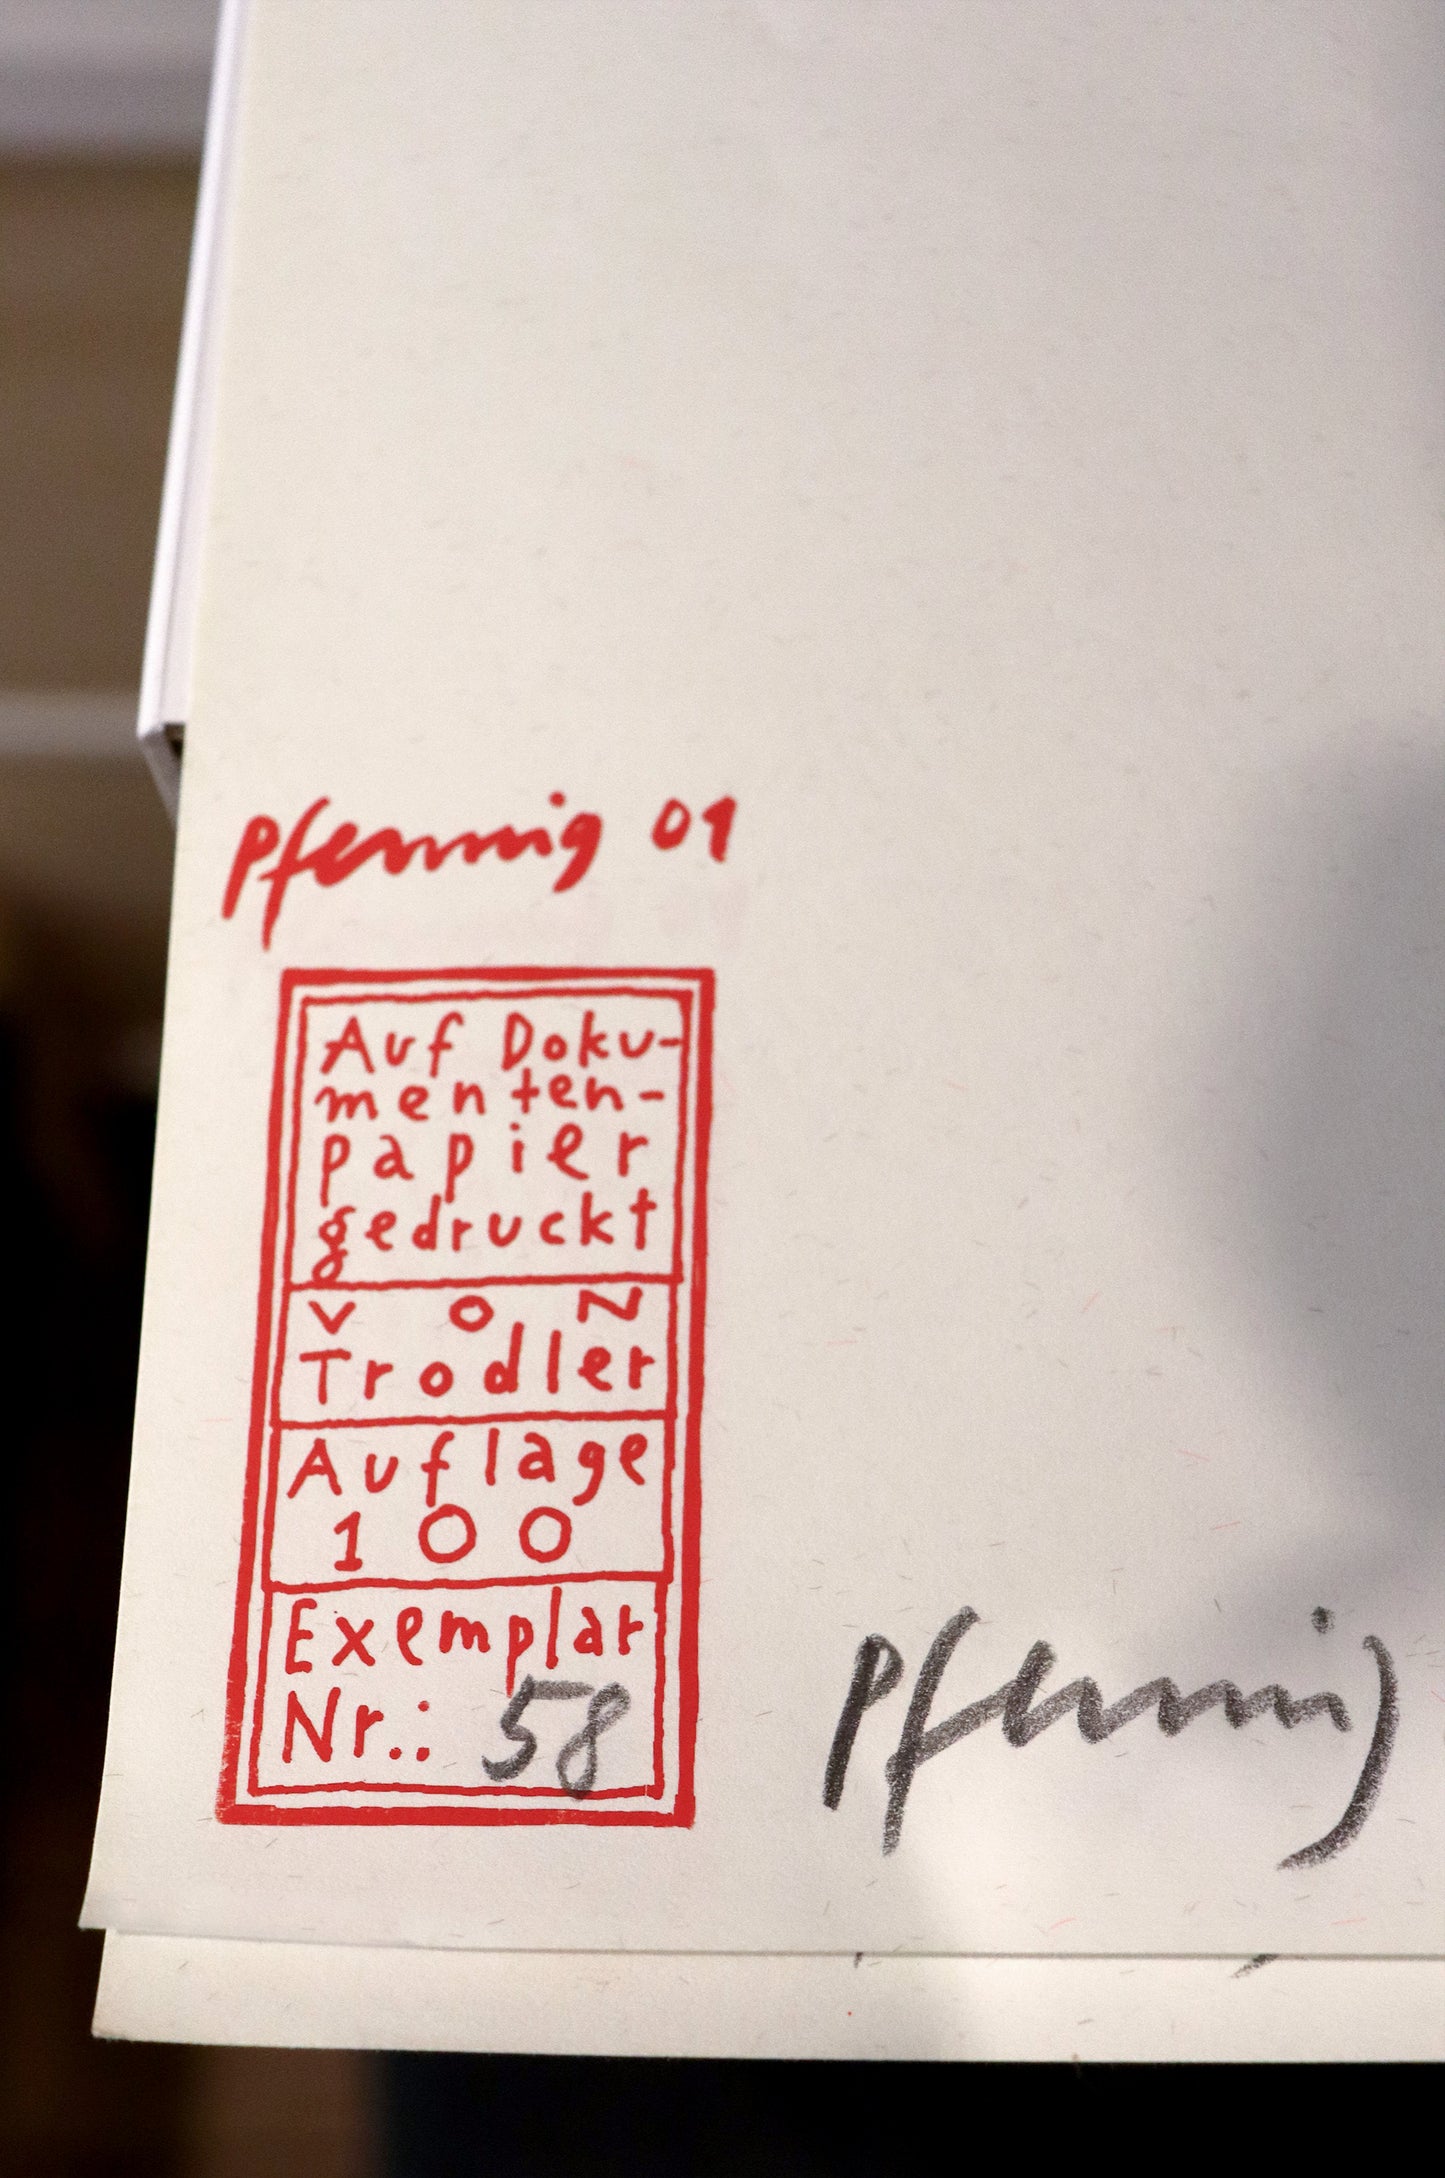 Pfennig 01
Auf Doku-
menten-
papier
gedruckt
VON
Trodler
Auflage
100
Exemplar
Nr.: 58
Pfennig